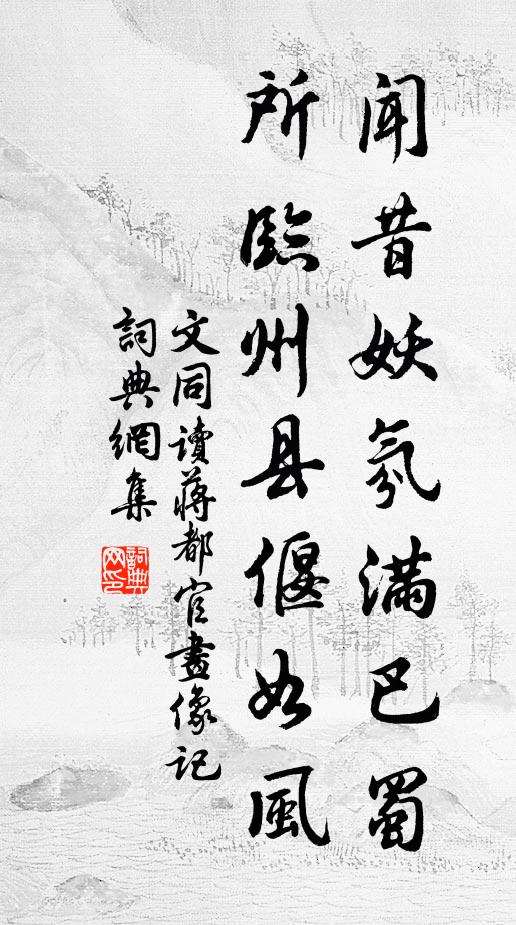 闻昔妖氛满巴蜀
所臨州县偃如風
文同讀蔣都官畫像记
詞典網集
詞典网印